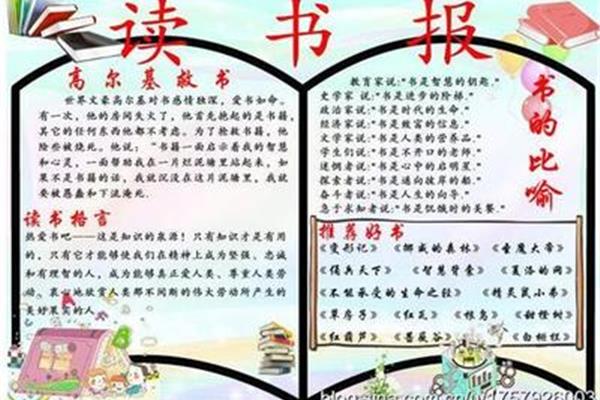 读 书 报
高尔基救书
世界文豪高尔基对书感情独深，爱书如命。
有一次，他的房间失火了，他首先抱起的是书籍，
其它的任何东西他都不考虑。为了抢救书籍，他
险些被烧死。他说：“书籍一面启示着我的智慧
和心灵，一面帮助我在一片烂泥塘里站起来，如
果不是书籍的话，我就沉没在这片泥塘里，我就
要被愚蠢和下流淹死.
读书格言
热爱书吧——这是知识的泉源！只有知识才是有用
的，只有它才能够使我们在精神上成为坚强、忠诚
和有理智的人，成为能够真正爱人类、尊重人类劳
动、衷心地欣赏人类那不间断的伟大劳动所产生的
美好果实的人.
书的比喻
教育家说："书是智慧的钥匙."
史学家 说:"书是进步的阶梯."
政治家说："书是时代的生命."
经济家说："书是致富的信息."
文学家说："书是人类的营养品."
学生们说："书是不开口的老师."
迷惘者说："书是心中的启明星."
探索者说："书是通向彼岸的船."
奋斗者说："书是人生的向导."
急于求知者说："书是饥饿时的美餐."
推荐好书
《变形记》 《挪威的森林》 《圣魔大帝》
《俑兵天下》 《智慧背囊》 《夏洛的网》
《不能承受的生命之轻》 《精灵鼠小弟》
《草房子》 《红瓦》 《根鸟》 《甜橙树》
《红葫芦》 《蔷薇谷》 《白栅栏》
blog.sina.com.cn/u/1757926003